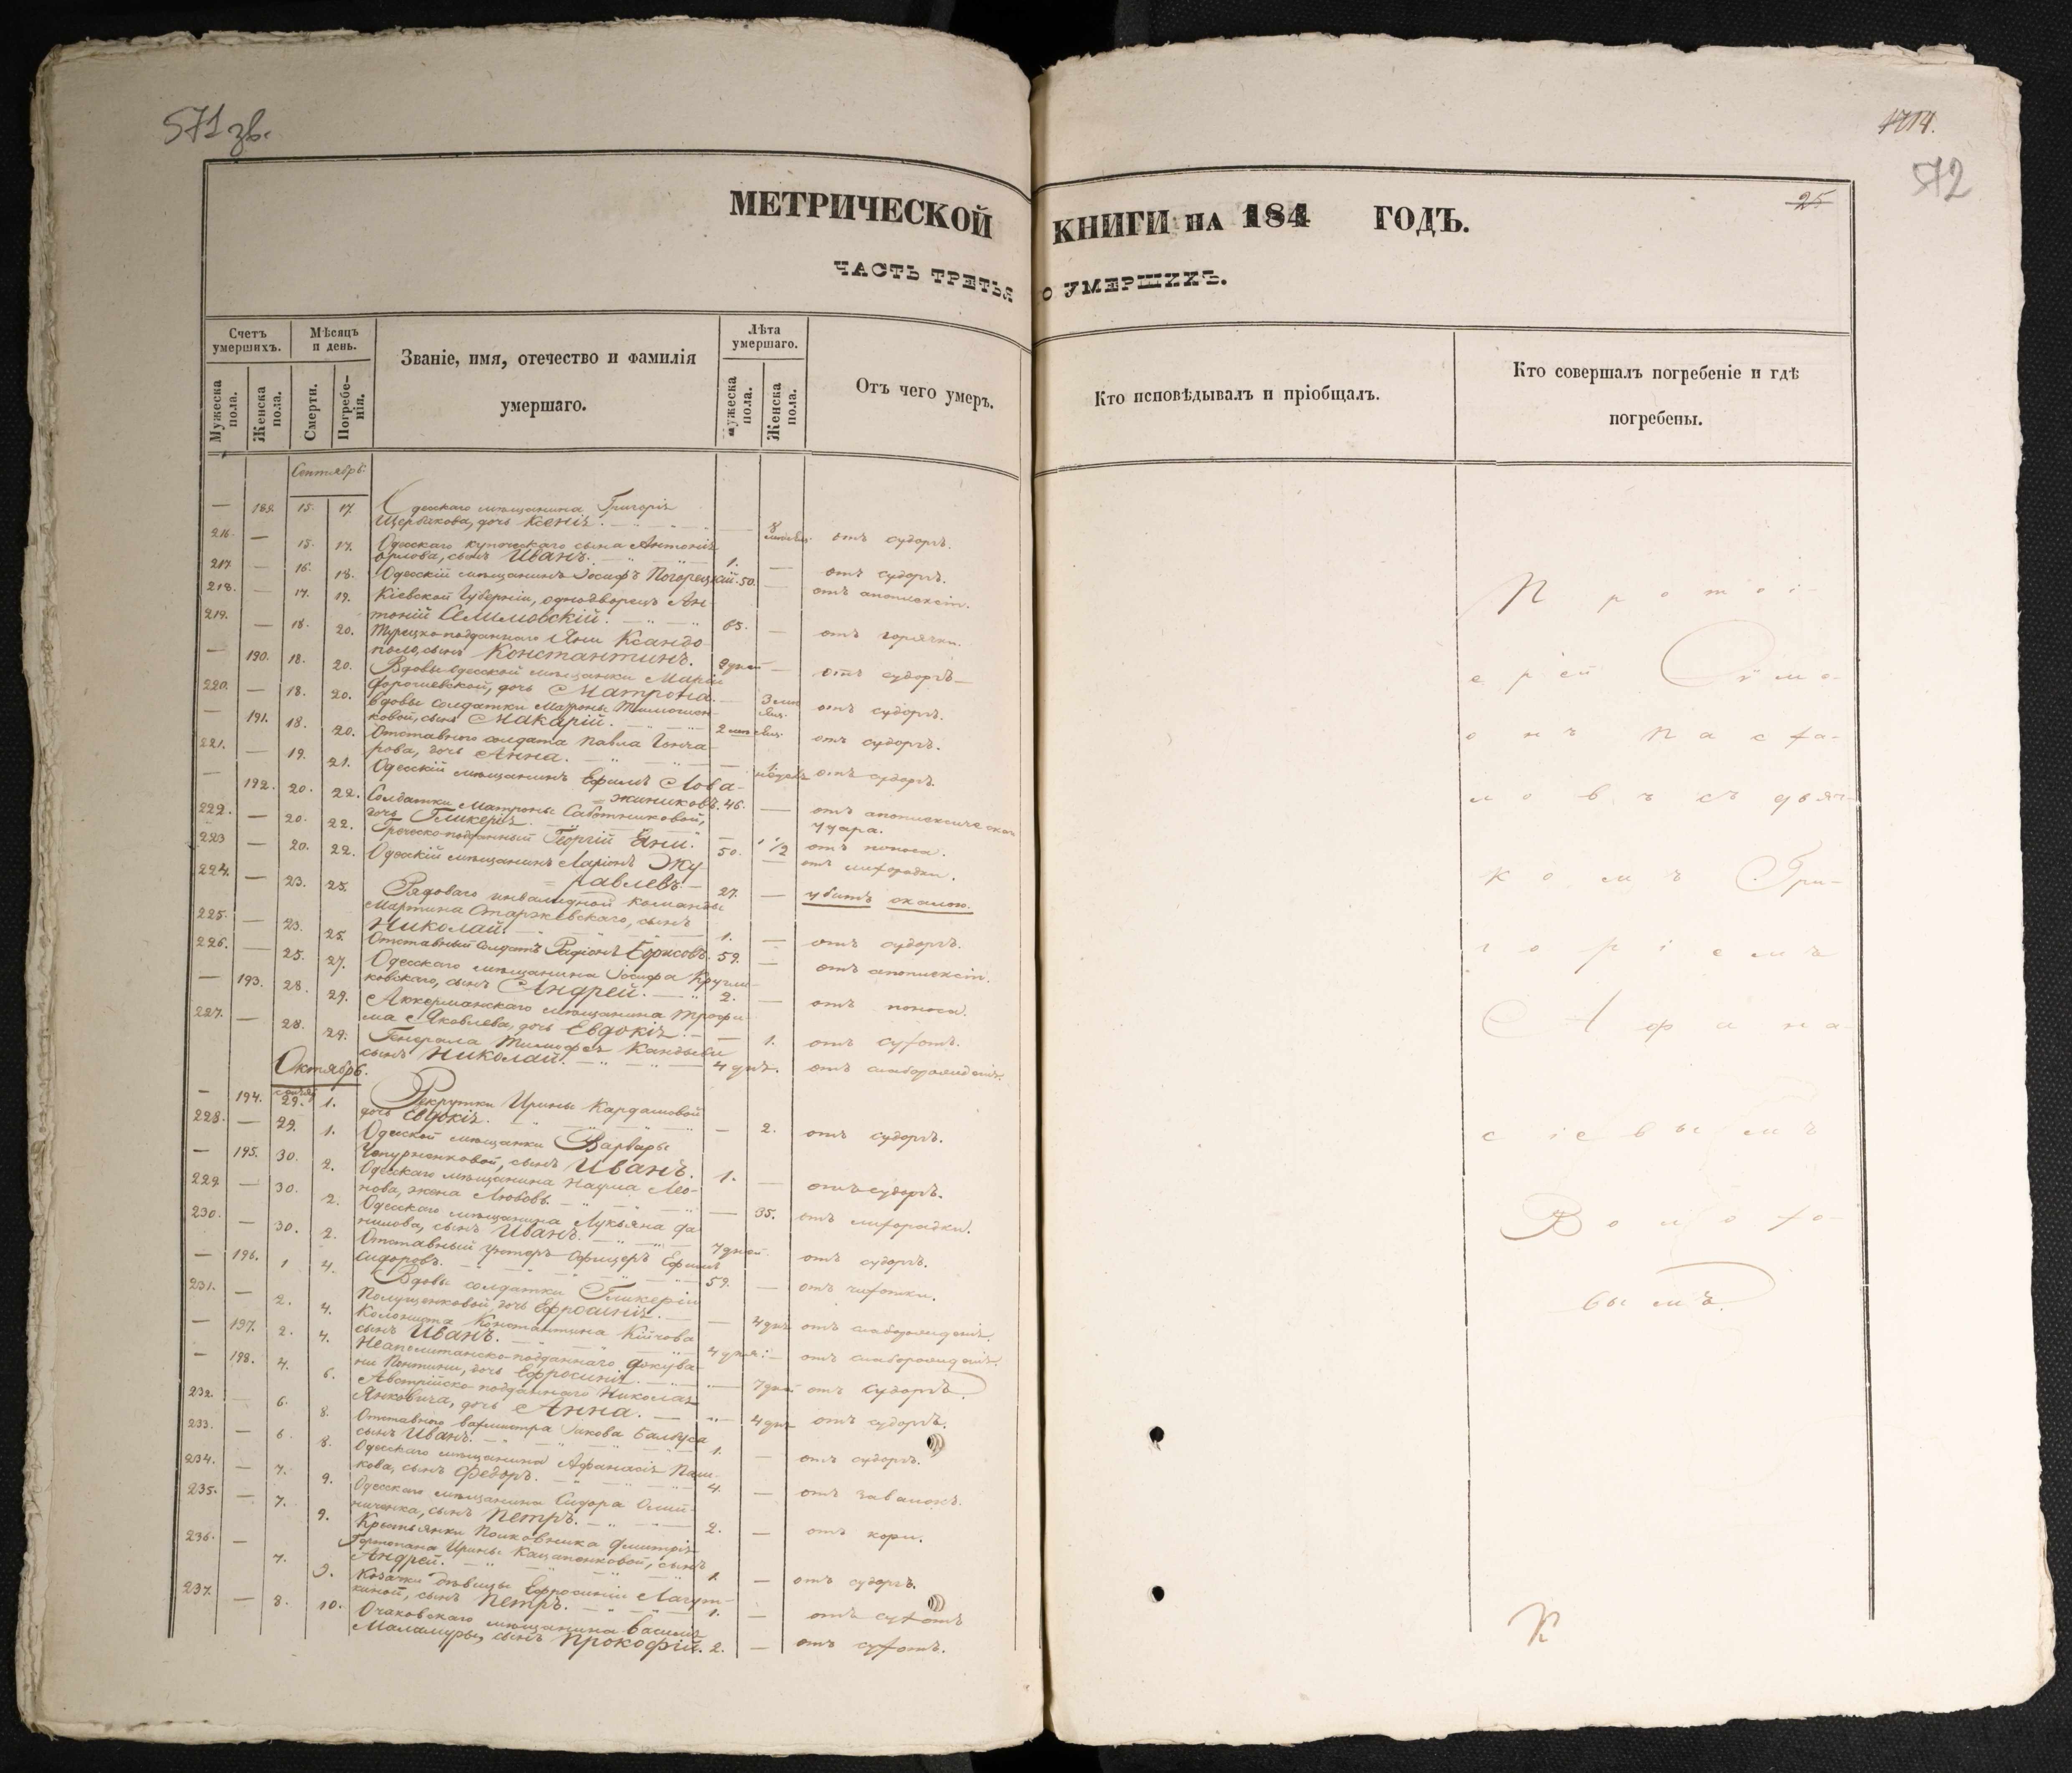 571 зв.
1714.
572
25
МЕТРИЧЕСКОЙ КНИГИ НА 184 ГОДЪ.
ЧАСТЬ ТРЕТЬЯ О УМЕРШИХЪ.
Счетъ умершихъ.
Мѣсяцъ и день.
Званіе, имя, отечество и фамилія умершаго.
Лѣта умершаго.
Отъ чего умеръ.
Кто исповѣдывалъ и пріобщалъ.
Кто совершалъ погребеніе и гдѣ погребены.
Мужеска пола.
Женска пола.
Смерти.
Погребенія.
Мужеска пола.
Женска пола.
Сентябрь.
— 189. 15. 17. Одесскаго мѣщанина Григорія
Щербакова, дочь Ксенія. — 8 отъ судоргъ.
216. — 15. 17. Одесскаго купеческаго сына Антонія
Орлова, сынъ Иванъ. 1. — отъ судоргъ.
217. — 16. 18. Одесскій мѣщанинъ Іосифъ Погорецкій. 50. — отъ апоплексіи.
218. — 17. 19. Кіевской Губерніи, однодворецъ Ан-
тоній Селимовскій. 65. — отъ горячки.
219. — 18. 20. Турецко-подданнаго Яни Ксандо-
поло, сынъ Константинъ. 9 дней — отъ судоргъ
— 190. 18. 20. Вдовы одесской мѣщанки Маріи
дочь Матрона. 3 отъ судоргъ.
220. — 18. 20. Вдовы солдатки Матроны
сынъ Макарій. 2 отъ судоргъ.
— 191. 18. 20. Отставнаго солдата Павла Гонча-
рова, дочь Анна. — отъ судоргъ.
221. — 19. 21. Одесскій мѣщанинъ Ефимъ Лова-
жниковъ. 46. — отъ апоплексическаго
удара.
— 192. 20. 22. Солдатки Матроны Саботниковой,
дочь Гликерія. — 1/2 отъ поноса.
222. — 20. 22. Греческо-подданный Георгій Яни. 50. — отъ лихорадки.
223 — 20. 22. Одесскій мѣщанинъ Ларіонъ Жу-
равлевъ. 27. — убитъ скалою.
224. — 23. 25. Рядоваго инвалидной команды
Мартина Старжевскаго, сынъ
Николай. 1. — отъ судоргъ.
225. — 23. 25. Отставный солдатъ Радіонъ Борисовъ. 59. — отъ апоплексіи.
226. — 25. 27. Одесскаго мѣщанина Іосифа Кругли-
ковскаго, сынъ Андрей. 2. — отъ поноса.
— 193. 28. 29. Аккерманскаго мѣщанина Трофи-
ма Яковлева, дочь Евдокія. — 1. отъ сухотъ.
227. — 28. 29. Генерала Тимофея Кандыбы
сынъ Николай. 4 дн. отъ слаборожденія.
Октябрь.
— 194. 29. 1. Рекрутки Ирины Кардашовой
дочь Евдокія. — 2. отъ судоргъ.
228. — 29. 1. Одесской мѣщанки Варвары
Чепурненковой, сынъ Иванъ. 1. — отъ судоргъ.
— 195. 30. 2. Одесскаго мѣщанина Наума Лео-
нова, жена Любовь. — 35. отъ лихорадки.
229 — 30. 2. Одесскаго мѣщанина Лукьяна Да-
нилова, сынъ Иванъ. 7 дней отъ судоргъ.
230. — 30. 2. Отставный унтеръ-офицеръ Ефимъ
Сидоровъ. 59. — отъ чахотки.
— 196. 1 4. Вдовы солдатки Гликеріи
дочь Ефросинія. — 4 дня отъ слаборожденія.
231. — 2. 4. Колониста Константина Кійчова
сынъ Иванъ. 4 дня. — отъ слаборожденія.
— 197. 2. 4. Неаполитанско-подданнаго
дочь Ефросинія. — 7 дней отъ судоргъ.
— 198. 4. 6. Австрійско-подданнаго Николая
Янковича, дочь Анна. — 4 дня отъ судоргъ.
232. — 6. 8. Отставнаго вахмистра Якова Балбуса
сынъ Иванъ. 1. — отъ судоргъ.
233. — 6. 8. Одесскаго мѣщанина Афанасія Паш-
кова, сынъ Федоръ. 4. — отъ завалокъ.
234. — 7. 9. Одесскаго мѣщанина Сидора Олий-
ниченка, сынъ Петръ. 2. — отъ кори.
235. — 7. 9. Крестьянки Полковника Дмитрія
Ирины Кацапенковой, сынъ
Андрей. 1. — отъ судоргъ.
236. — 7. 9. Козачки дѣвицы Ефросиніи Лагут-
киной, сынъ Петръ. 1. — отъ сухотъ
237. — 8. 10. Очаковскаго мѣщанина Василія
Маламуры, сынъ Прокофій. 2. — отъ сухотъ.
Протоі-
ерей Симе-
онъ Пасха-
ловъ съ дьяч-
комъ Гри-
горіемъ
Афана-
сіевымъ
Волохо-
вымъ.